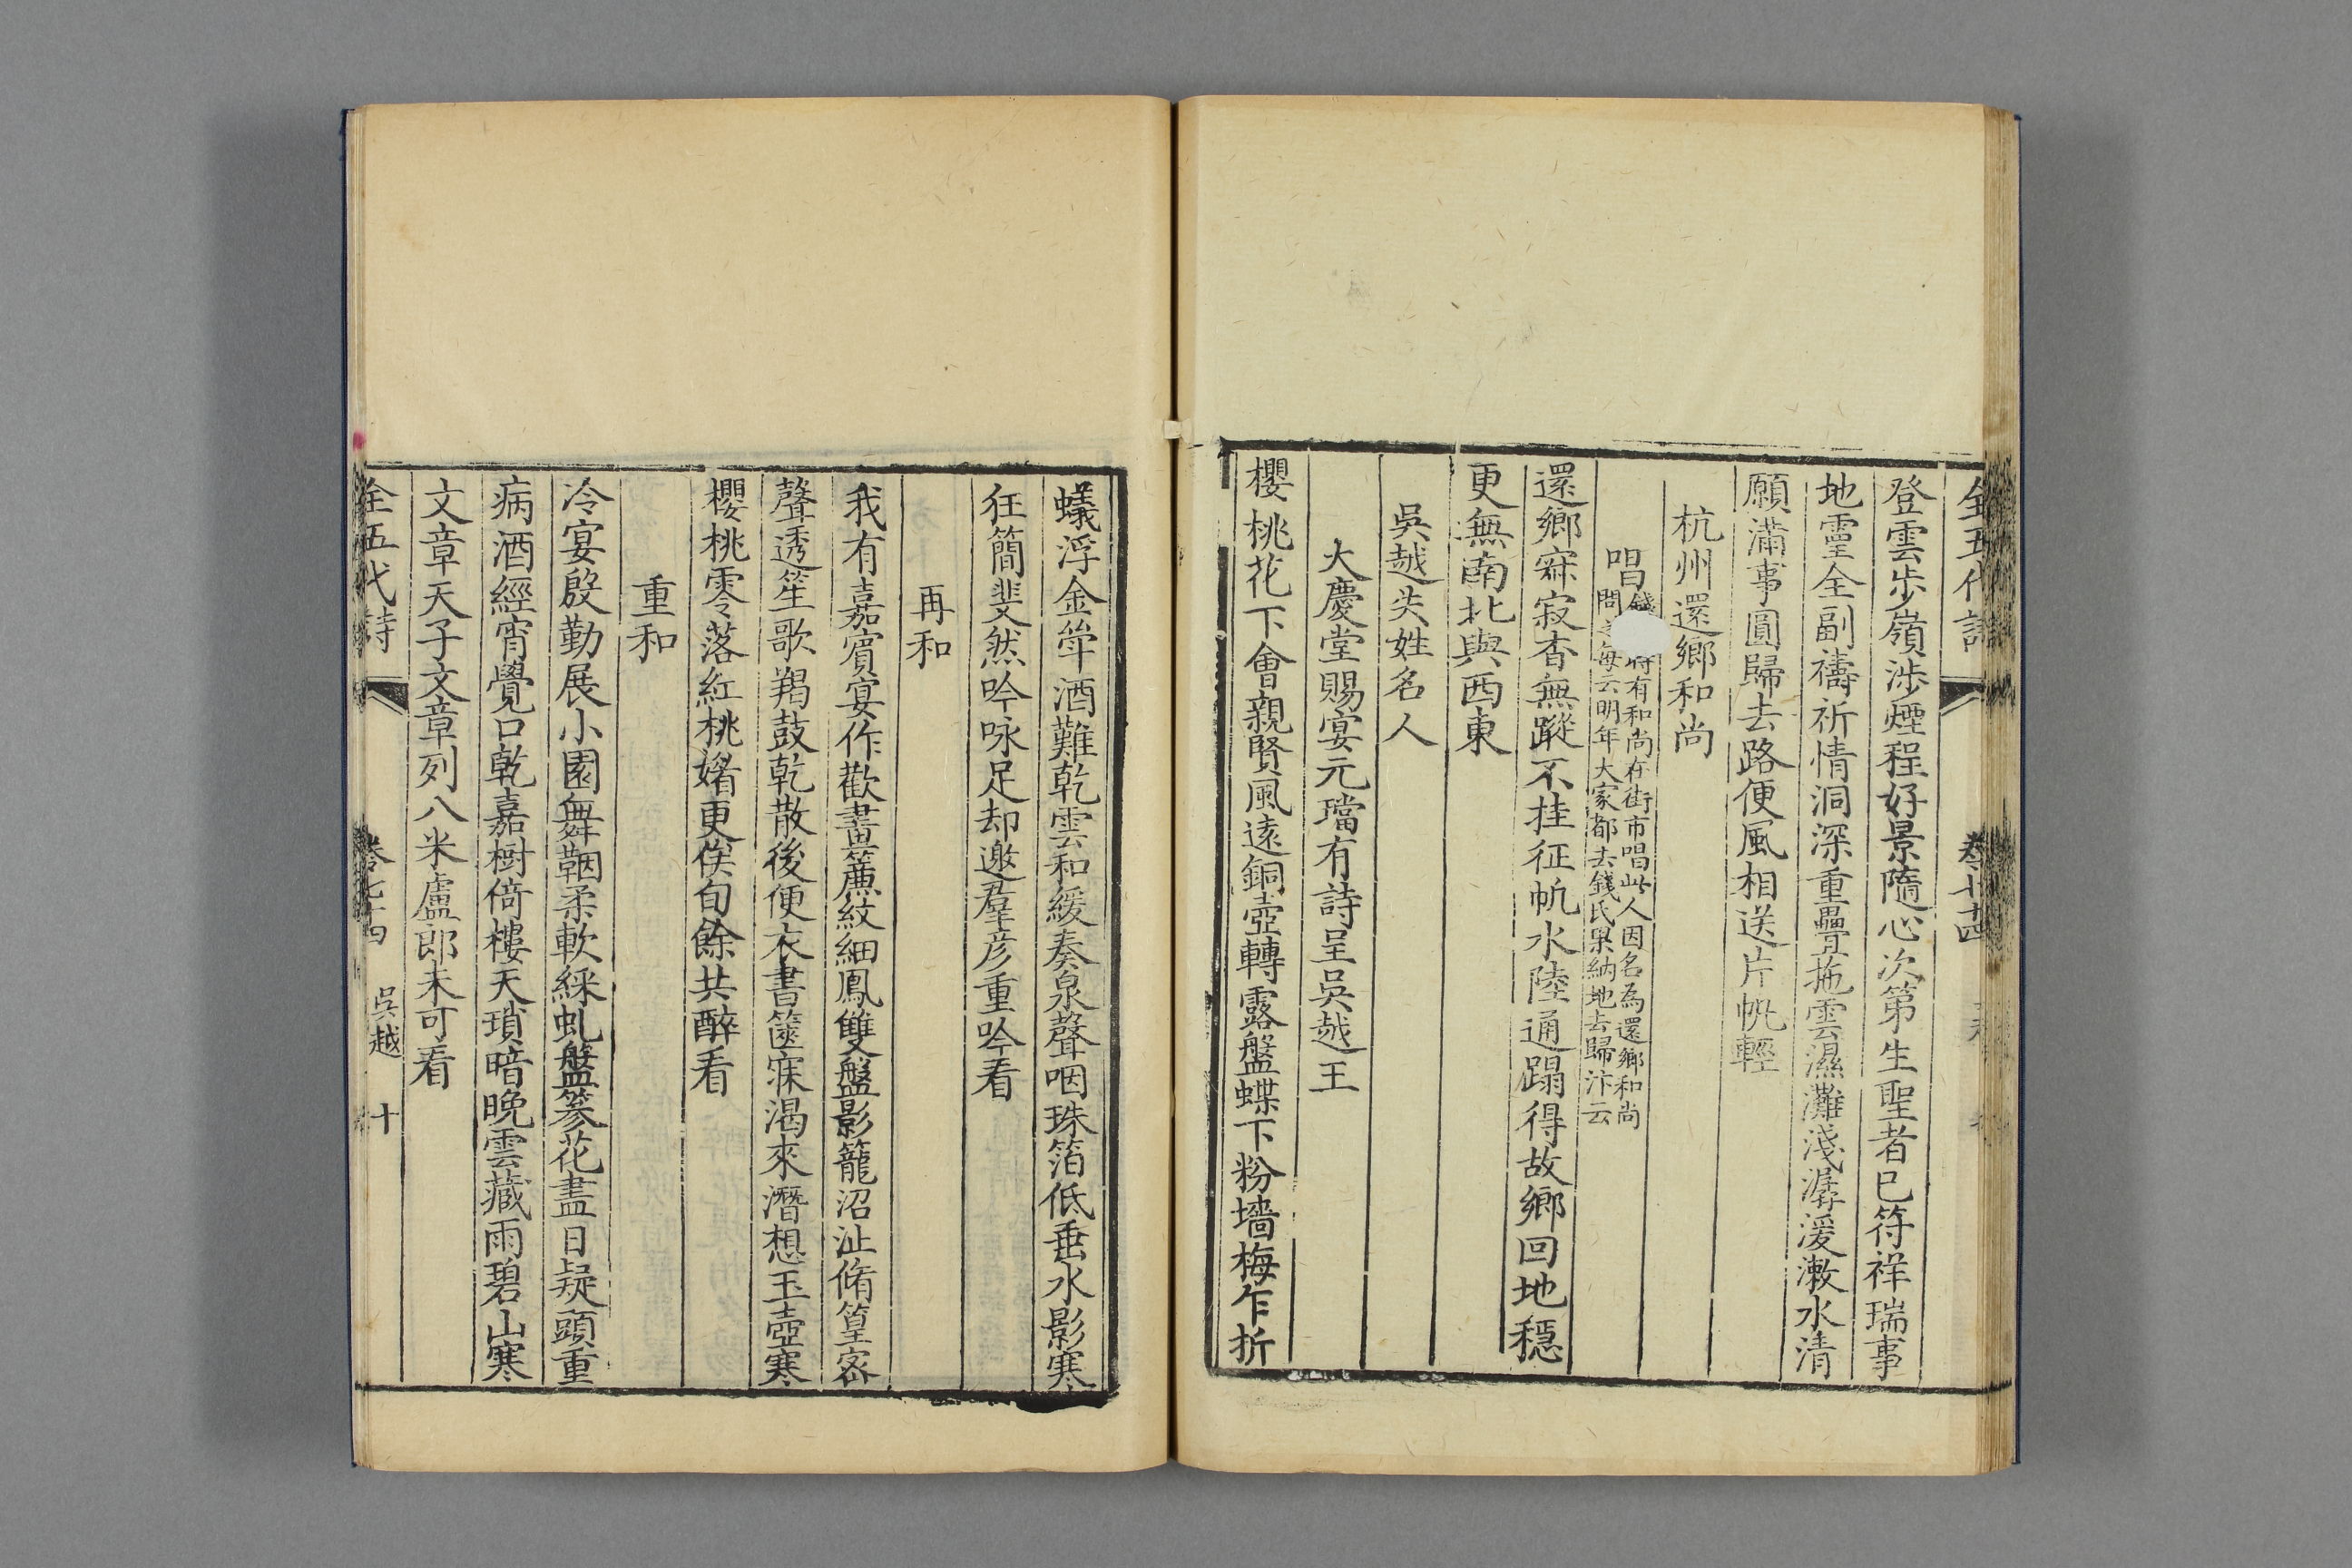 全五代詩 卷七十四
登雲步嶺涉煙程好景隨心次第生聖者已符祥瑞事
地靈全副禱祈情洞深重疊拖雲濕灘淺潺湲漱水清
願滿事圓歸去路便風相送片帆輕
杭州還鄉和尚
唱
錢 府有和尚在街市唱此人因名為還鄉和尚
問之每云明年大家都去錢氏果納地去歸汴云
還鄉寂寂杳無蹤不挂征帆水陸通蹋得故鄉回地穩
更無南北與西東
吳越失姓名人
大慶堂賜宴元璫有詩呈吳越王
櫻桃花下會親賢風遠銅壺轉露盤蝶下粉墻梅乍折
蟻浮金斝酒難乾雲和緩奏泉聲咽珠箔低垂水影寒
狂簡斐然吟咏足却邀羣彦重吟看
再和
我有嘉賓宴作歡畫簾紋細鳳雙盤影籠沼沚脩篁密
聲透笙歌羯鼓乾散後便衣書篋寐渴來潛想玉壺寒
櫻桃零落紅桃媎更俟旬餘共醉看
重和
冷宴殷勤展小園舞鞇柔軟綵虬盤篸花盡日疑頭重
病酒經宵覺口乾嘉樹倚樓天瑣暗晚雲藏雨碧山寒
文章天子文章列八米盧郎未可看
全五代詩 卷七十四 吳越 十